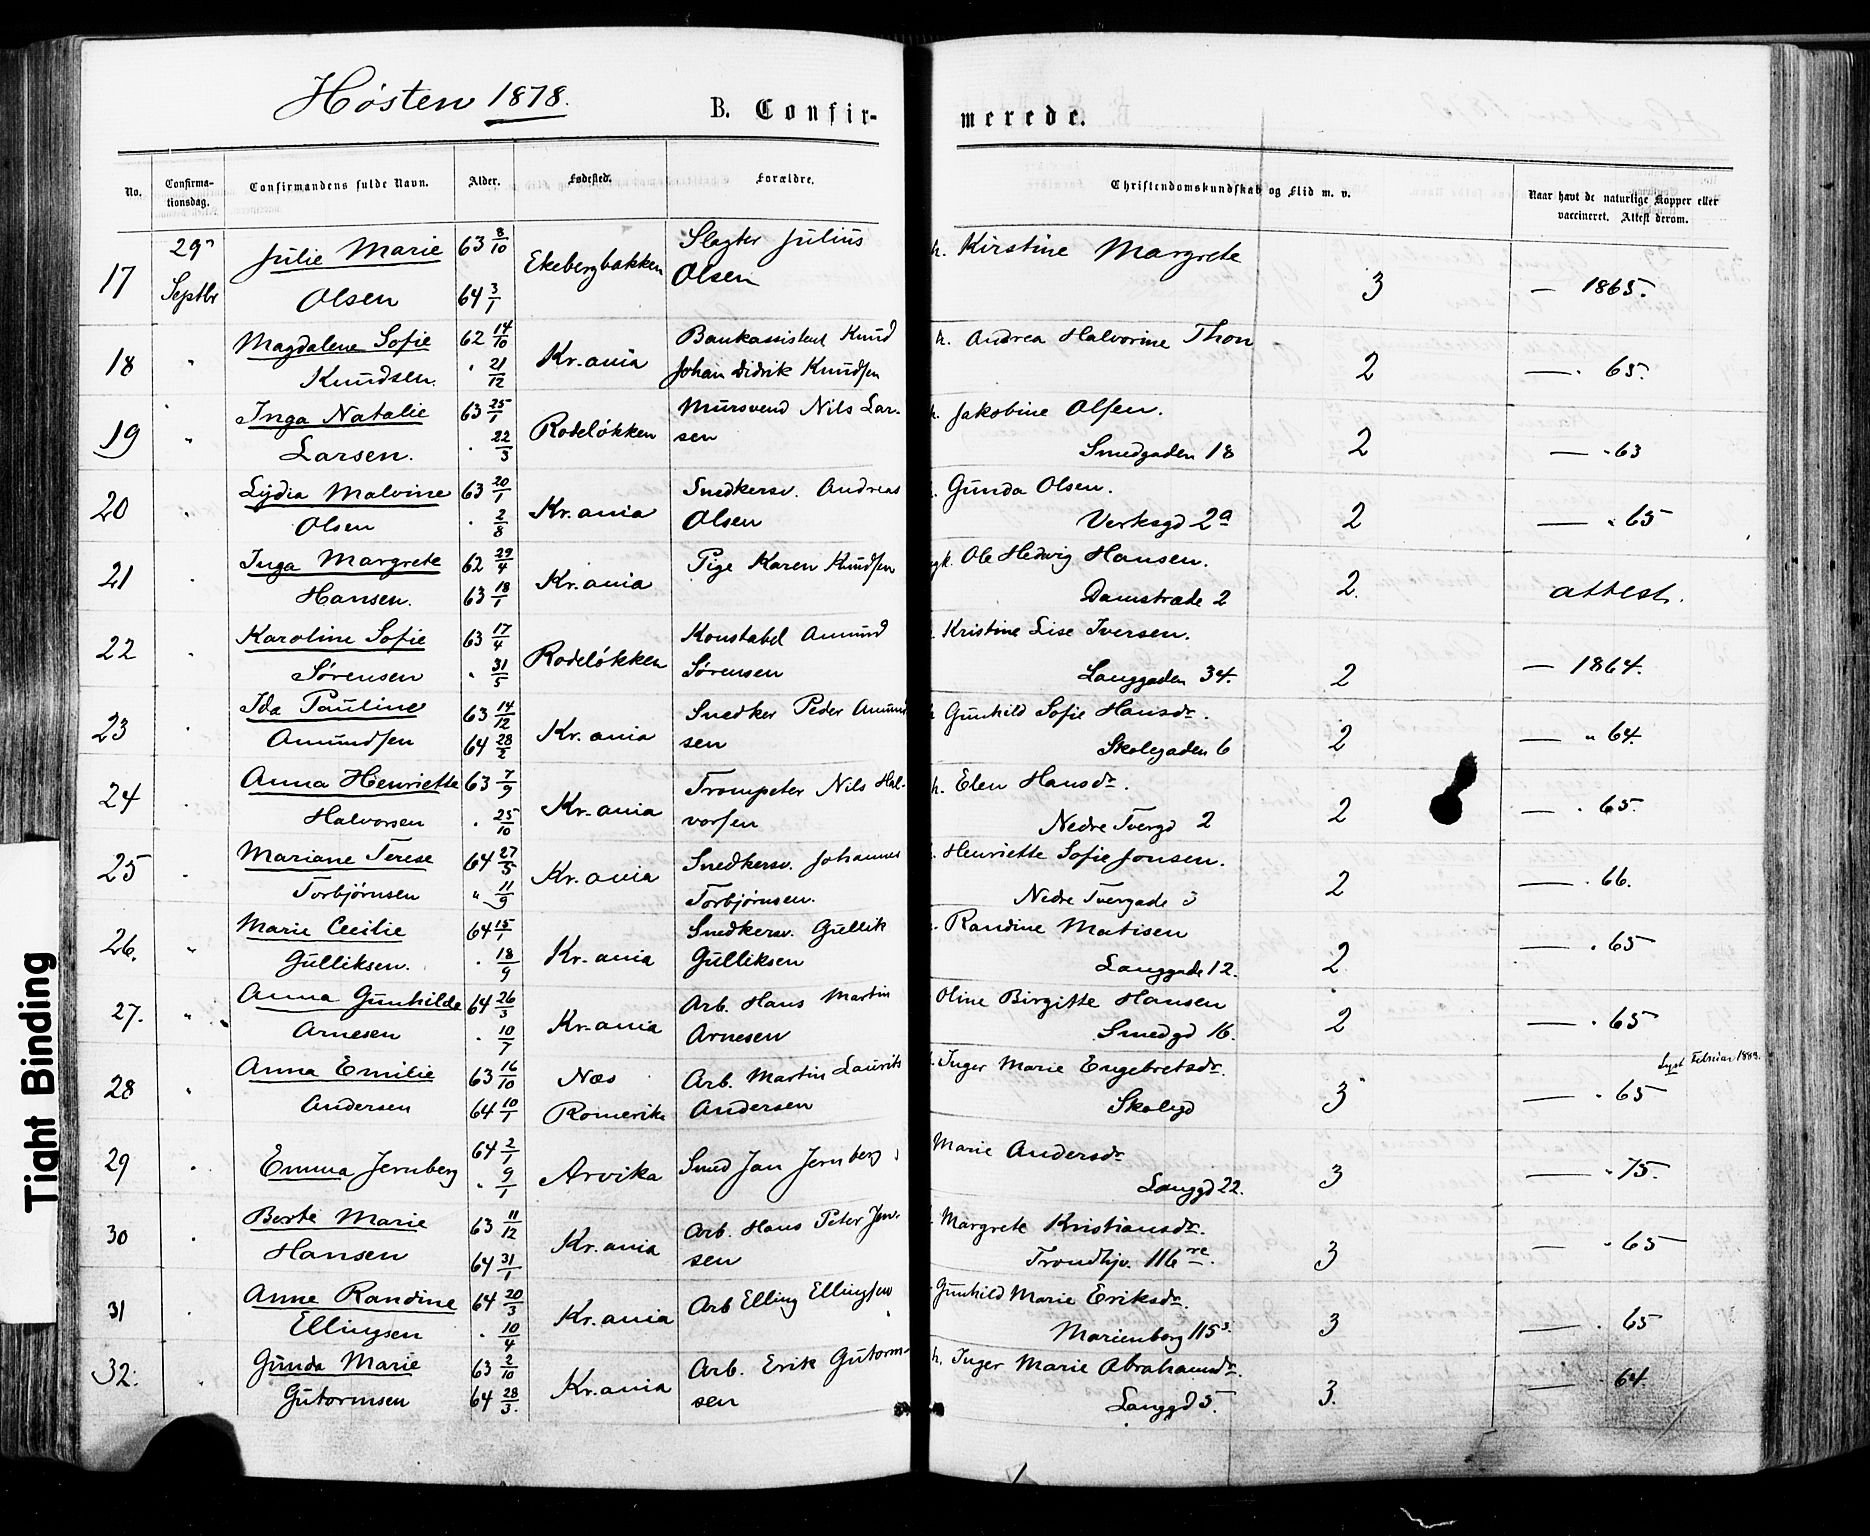 Høsten 1878.
B. Confir-
merede.
No.
Confirma-
tionsdag.
Confirmandens fulde Navn.
Alder.
Fødested.
Forældre.
Christendomskundskab og Flid m. v.
Naar havt de naturlige Kopper eller
vaccineret. Attest derom.
17 29 Julie Marie 63 8/10 Ekebergbakken Slagter Julius h. Kirstine Margrete
Septbr Olsen 64 3/1 Olsen 3 — 1865.
18 " Magdalene Sofie 62 14/10 Kr.ania Bankassistent Knud h. Andrea Halvorine Thon
Knudsen. " 21/12 Johan Didrik Knudsen 2 — " 65.
19 " Inga Natalie 63 25/1 Rodeløkken Mursvend Nils Lar- h. Jakobine Olsen.
Larsen. " 22/3 sen Smedgaden 18 2 — " 63
20 " Lydia Malvine 63 20/1 Kr.ania Snedkersv. Andreas Gunda Olsen.
Olsen " 2/8 Olsen Verksgd 2a 2 — " 65
21 " Inga Margrete 62 29/4 Kr.ania Pige Karen Knudsen Ole Hedvig Hansen.
Hansen. 63 18/1 Damstræde 2 2. attest.
22 " Karoline Sofie 63 17/4 Rodeløkken Konstabel Amund Kristine Lise Iversen.
Sørensen " 31/5 Sørensen Langgaden 34. 2 — 1864.
23 " Ida Pauline 63 14/12 Kr.ania Snedker Peder Amund Gunhild Sofie Hansdr.
Amundsen 64 28/2 sen Skolegaden 6 2 — " 64.
24 " Anna Henriette 63 7/9 Kr.ania Trompeter Nils Hal- h. Elen Hansdr.
Halvorsen " 25/10 vorsen Nedre Tvergd 2 2 — " 65.
25 " Mariane Terese 64 27/5 Kr.ania Snedkersv. Johannes Henriette Sofie Jonsen.
Torbjørnsen " 11/9 Torbjørnsen. Nedre Tvergade 3 2 — " 66.
26. " Marie Cecilie 64 15/1 Kr.ania Snedkersv. Gullik Randine Matisen
Gulliksen. " 18/9 Gulliksen Langgade 12. 2 — " 65
27. " Anna Gunhilde 64 26/3 Kr.ania Arb. Hans Martin Oline Birgitte Hansen
Arnesen " 10/7 Arnesen Smedgd 16. 2 — " 65
28 " Anna Emilie 63 16/10 Næs Arb. Martin Laurits Inger Marie Engebretsdr. Lyst Februar 1889.
Andersen 64 10/1 Romerike Andersen Skolegd 3 — " 65
29 " Emma Jernberg 64 2/1 Arvika Smed Jan Jernberg Marie Andersdr
" 9/1 Langgd 22. 3 — " 75.
30 " Berte Marie 63 11/12 Kr.ania Arb. Hans Peter Jen- Margrete Kristiansdr.
Hansen 64 31/1 sen Trondhjv. 116 re. 3 — " 65
31 " Anne Randine 64 20/3 Kr.ania Arb Elling Ellingsen Gunhild Marie Eriksdr.
Ellingsen " 10/4 Marienborg 115 3 — " 65
32. " Gunda Marie 63 2/10 Kr.ania Arb. Erik Gutorm- h. Inger Marie Abrahamsdr.
Gutormsen 64 28/3. sen Langgd 5. 3. — 64.
Tight Binding